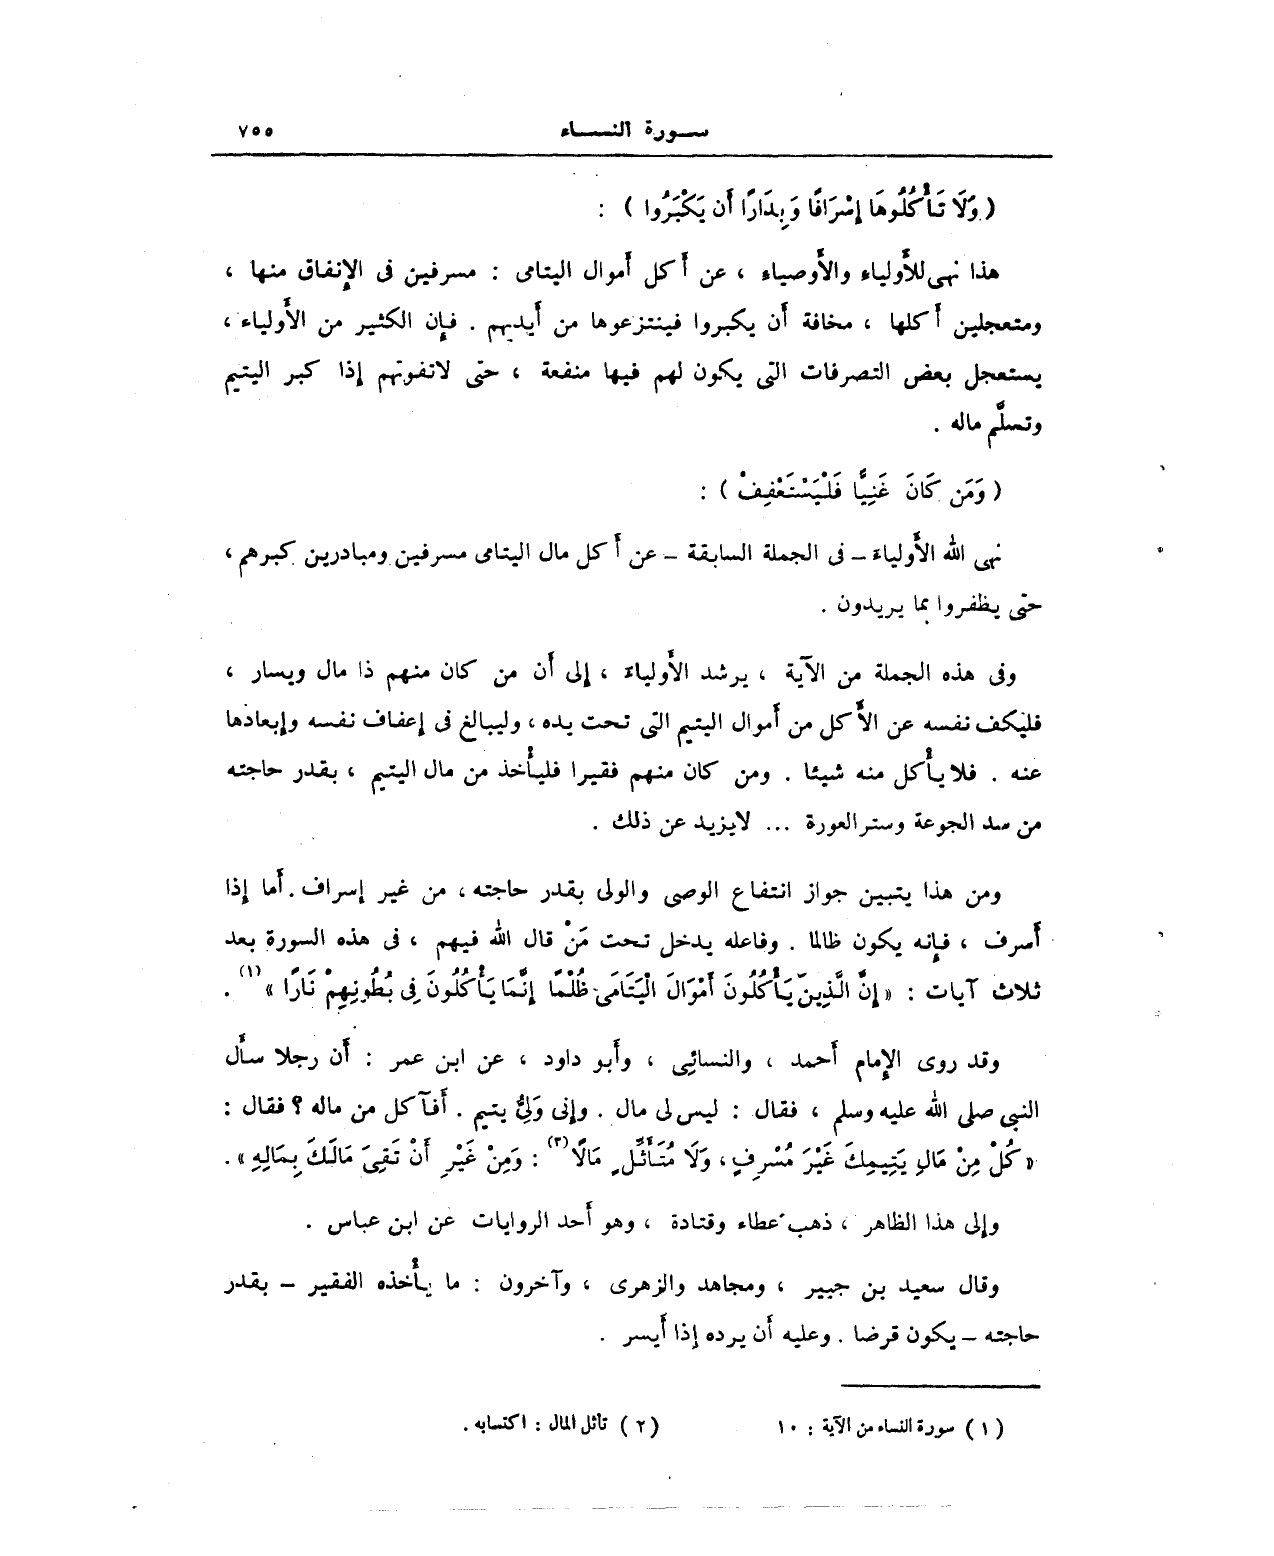 سورة النساء ٧٥٥
( وَلَا تَأْكُلُوهَا إِسْرَافًا وَبِدَارًا أَن يَكْبَرُوا ) :
هذا نهى للأولياء والأوصياء ، عن أكل أموال اليتامى : مسرفين فى الإنفاق منها ،
ومتعجلين أكلها ، مخافة أن يكبروا فينتزعوها من أيديهم . فإن الكثير من الأولياء ،
يستعجل بعض التصرفات التى يكون لهم فيها منفعة ، حتى لاتفوتهم إذا كبر اليتيم
وتسلَّم ماله .
( وَمَن كَانَ غَنِيًّا فَلْيَسْتَعْفِفْ ) :
نهى الله الأولياءَ – فى الجملة السابقة – عن أكل مال اليتامى مسرفين ومبادرين كبرهم ،
حتى يظفروا بما يريدون .
وفى هذه الجملة من الآية ، يرشد الأولياءَ ، إلى أن من كان منهم ذا مال ويسار ،
فليكف نفسه عن الأكل من أموال اليتيم التى تحت يده ، وليبالغ فى إعفاف نفسه وإبعادها
عنه . فلا يأْكل منه شيئا . ومن كان منهم فقيرا فليأْخذ من مال اليتيم ، بقدر حاجته
من سد الجوعة وستر العورة ... لايزيد عن ذلك .
ومن هذا يتبين جواز انتفاع الوصى والولى بقدر حاجته ، من غير إسراف . أما إذا
أسرف ، فإنه يكون ظالما . وفاعله يدخل تحت مَنْ قال الله فيهم ، فى هذه السورة بعد
ثلاث آيات : « إِنَّ الَّذِينَ يَأْكُلُونَ أَمْوَالَ الْيَتَامَى ظُلْمًا إِنَّمَا يَأْكُلُونَ فِى بُطُونِهِمْ نَارًا » (١) .
وقد روى الإمام أحمد ، والنسائى ، وأبو داود ، عن ابن عمر : أن رجلا سأل
النبى صلى الله عليه وسلم ، فقال : ليس لى مال . وإنى وَلِىُّ يتيم . أفآكل من ماله ؟ فقال :
« كُلْ مِنْ مَالِ يَتِيمِكَ غَيْرَ مُسْرِفٍ ، وَلَا مُتَأَثِّلٍ مَالًا (٢) : وَمِنْ غَيْرِ أَنْ تَقِىَ مَالَكَ بِمَالِهِ » .
وإلى هذا الظاهر ، ذهب عطاء وقتادة ، وهو أحد الروايات عن ابن عباس .
وقال سعيد بن جبير ، ومجاهد والزهرى ، وآخرون : ما يأْخذه الفقير – بقدر
حاجته – يكون قرضا . وعليه أن يرده إذا أيسر .
( ١ ) سورة النساء من الآية : ١٠ ( ٢ ) تأثل المال : اكتسابه .